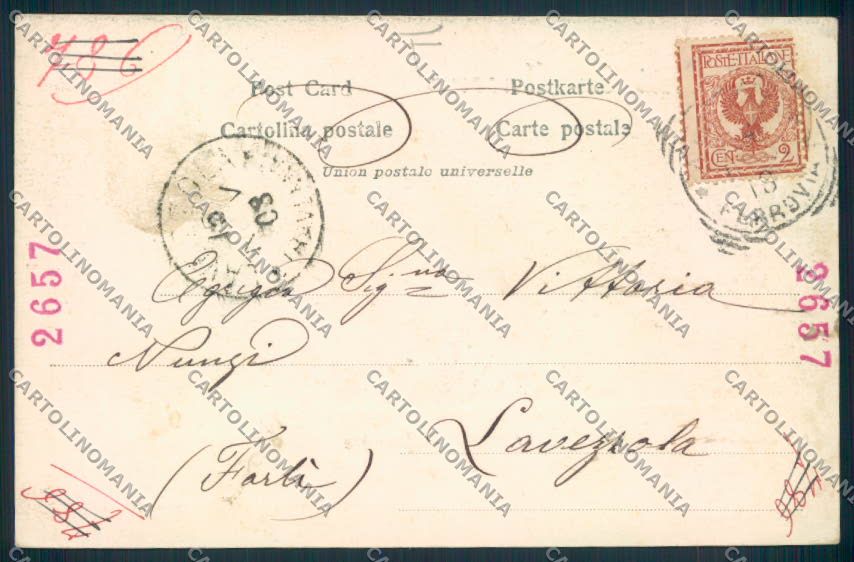 786
Post Card Postkarte
Cartolina postale Carte postale
Union postale universelle
POSTE ITALIANE
CEN. 2
18
FERROVIA
03
2657
2657
Egregia Sig.na Vittoria
Nunzi
Lavezzola
(Forlì)
CARTOLINOMANIA